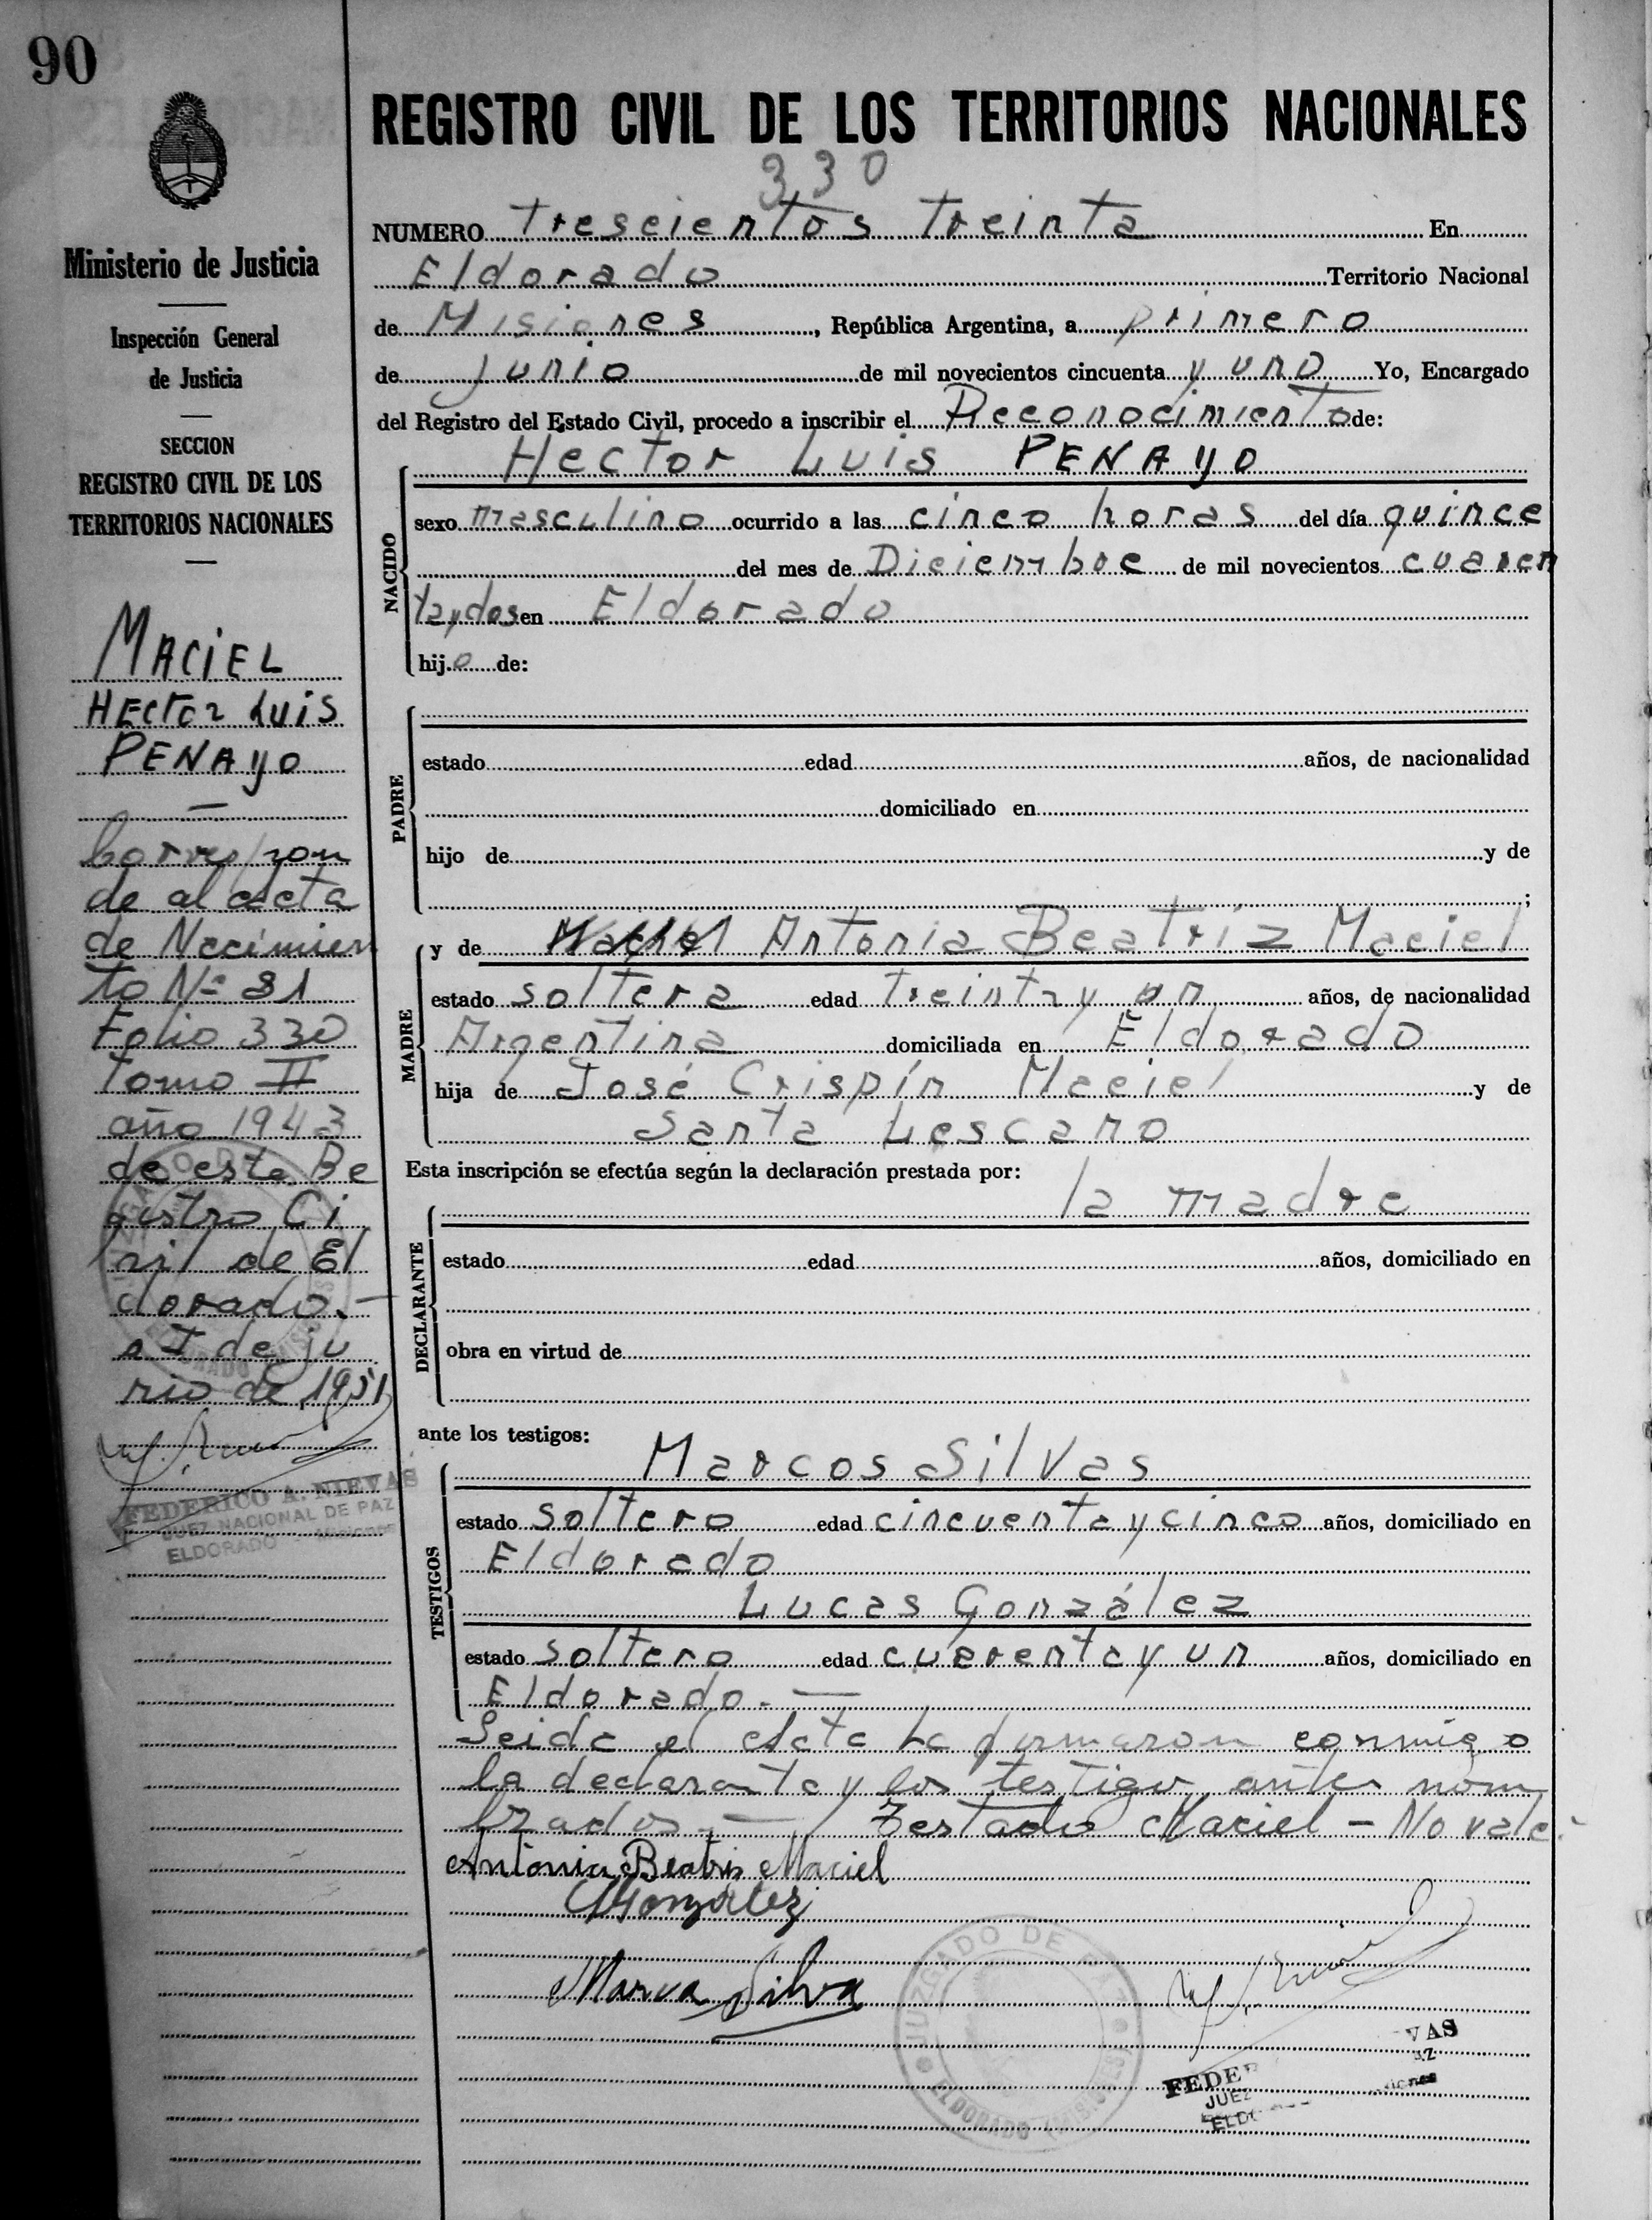 90
REGISTRO CIVIL DE LOS TERRITORIOS NACIONALES
330
NUMERO Trescientos Treinta En
Eldorado Territorio Nacional
de Misiones, República Argentina, a primero
de junio de mil novecientos cincuenta y uno Yo, Encargado
del Registro del Estado Civil, procedo a inscribir el Reconocimiento de:
Hector Luis PENAYO
NACIDO
sexo masculino ocurrido a las cinco horas del día quince
del mes de Diciembre de mil novecientos cuaren
tay dos en Eldorado
hijo de:
PADRE
estado edad años, de nacionalidad
domiciliado en
hijo de y de
;
MADRE
y de Antonia Beatriz Maciel
estado soltera edad treinta y un años, de nacionalidad
Argentina domiciliada en Eldorado
hija de José Crispín Maciel y de
Santa Lescano
Esta inscripción se efectúa según la declaración prestada por:
la madre
DECLARANTE
estado edad años, domiciliado en
obra en virtud de
ante los testigos:
TESTIGOS
Marcos Silvas
estado soltero edad cincuenta y cinco años, domiciliado en
Eldorado
Lucas González
estado soltero edad cuarenta y un años, domiciliado en
Eldorado. —
Leida el acta la firmaron conmigo
la declaranta y los testigos antes nom
brados. — Testado Maciel - No vale.
Antonia Beatris Maciel
González
Silva
JUZGADO DE PAZ
ELDORADO (MISIONES)
FEDER VAS
JUEZ AZ
ELDO iones
Ministerio de Justicia
Inspección General
de Justicia
SECCION
REGISTRO CIVIL DE LOS
TERRITORIOS NACIONALES
MACIEL
HECTOR LUIS
PENAYO
—
Correspon
de al acta
de Nacimien
to Nº 81
Folio 330
Tomo II
año 1943
de este Re
gistro Ci
vil de El
dorado. —
de ju
nio de 1951
FEDERICO A. NIEVAS
JUEZ NACIONAL DE PAZ
ELDORADO - Misiones